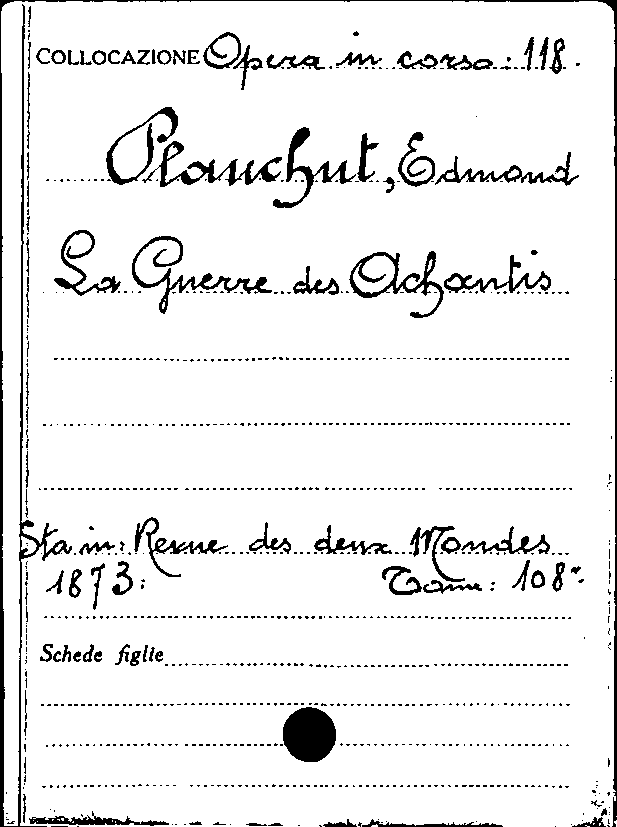 COLLOCAZIONE Opera in corso: 118.
Plauchut, Edmond
La Guerre des Achantis
Sta in: Revue des deux Mondes
1873: Tome: 108°.
Schede figlie